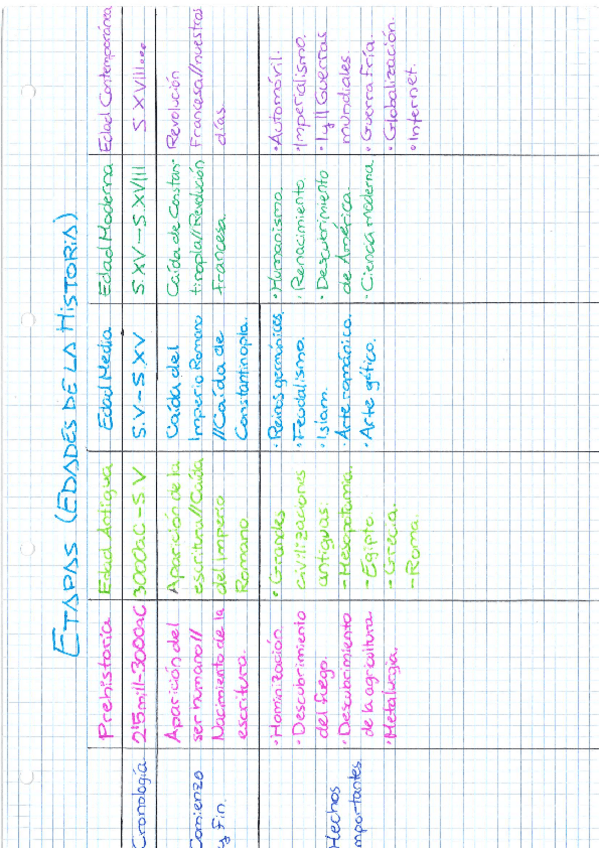 ETAPAS (EDADES DE LA HISTORIA)
Prehistoria
Edad Antigua
Edad Media
Edad Moderna
Edad Contemporánea
Cronología
2'5mill-3000aC
3000aC-S V
S.V-S.XV
S.XV-S.XVIII
S.XVIII...
Comienzo
y Fin.
Aparición del
ser humano//
Nacimiento de la
escritura.
Aparición de la
escritura//Caída
del Imperio
Romano.
Caída del
Imperio Romano
//Caída de
Constantinopla.
Caída de Constan-
tinopla//Revolución
Francesa.
Revolución
Francesa//nuestros
días.
Hechos
importantes
·Hominización
·Descubrimiento
del fuego.
·Descubrimiento
de la agricultura
·Metalurgia.
·Grandes
civilizaciones
antiguas:
-Mesopotamia.
-Egipto.
-Grecia.
-Roma.
·Reinos germánicos.
·Feudalismo.
·Islam.
·Arte románica.
·Arte gótico.
·Humanismo.
·Renacimiento.
·Descubrimiento
de América.
·Ciencia moderna.
·Automóvil.
·Imperialismo.
·I y II Guerras
mundiales.
·Guerra Fría.
·Globalización.
·Internet.